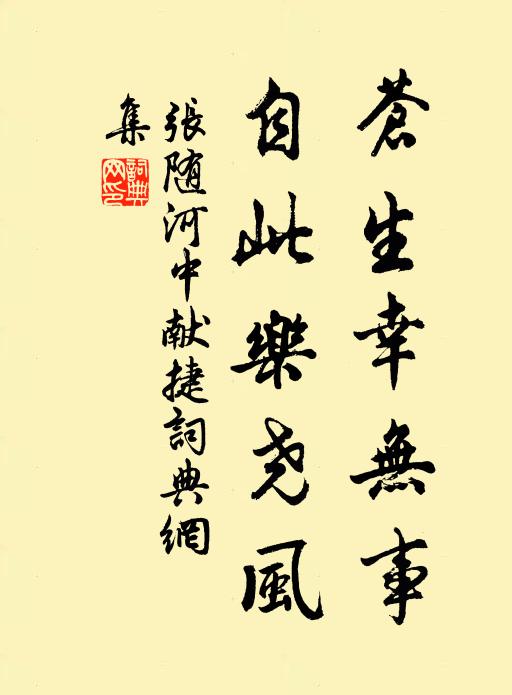 蒼生幸無事
自此樂尧風
張随河中献捷詞典網
集
詞典网印